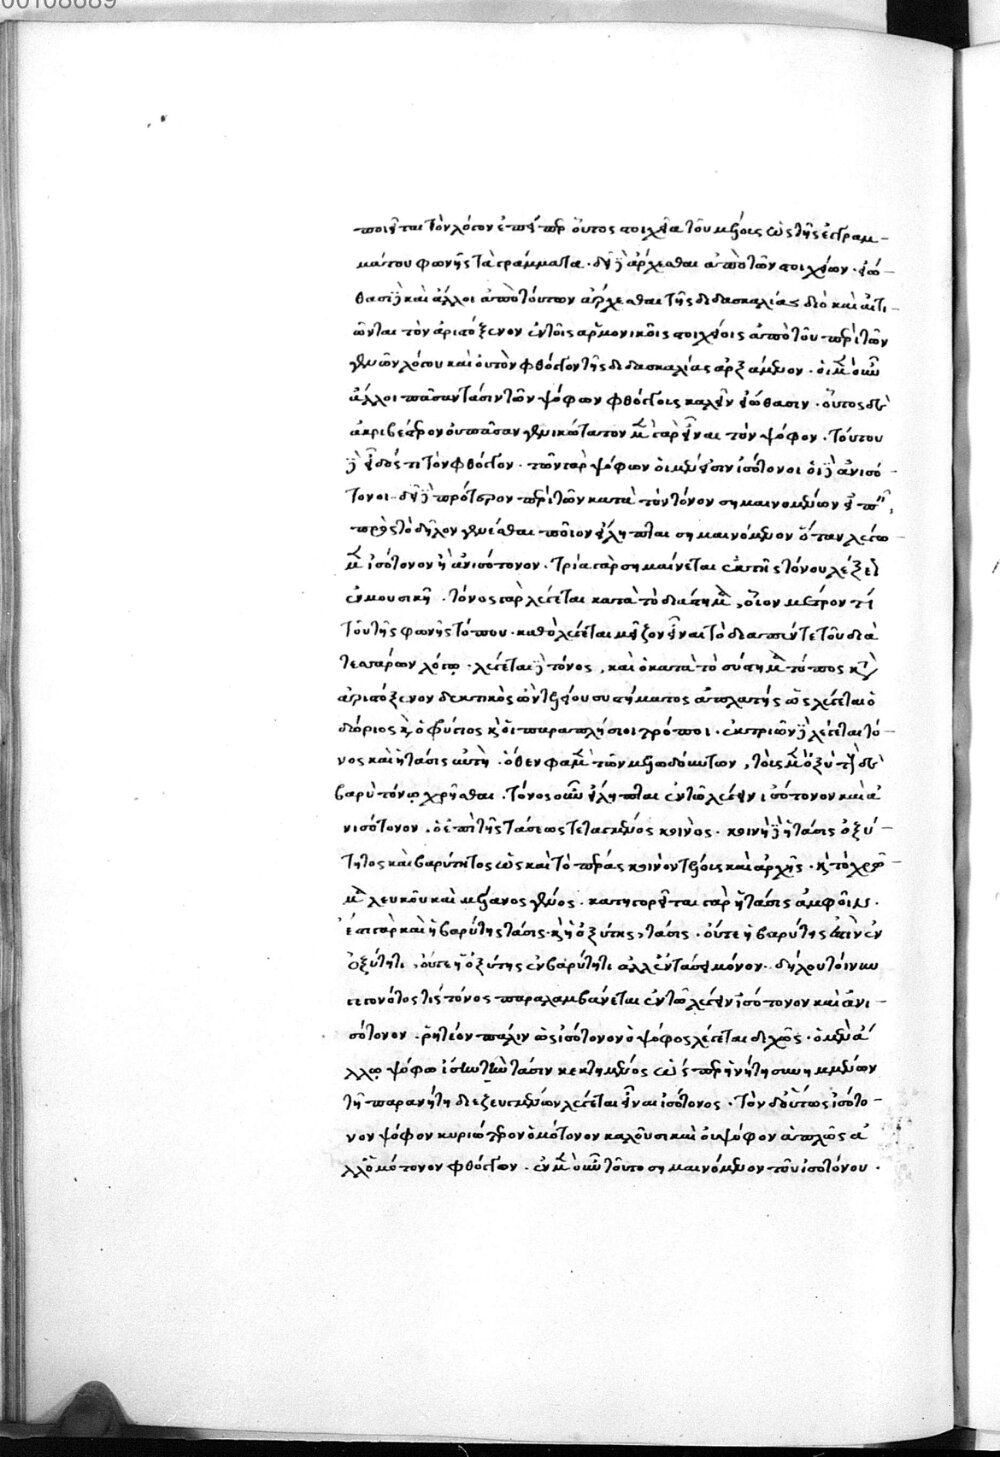 ποιεῖται τὸν λόγον ἐπείπερ οὗτος στοιχεῖα τοῦ μέλους ὡς τῆς ἐγγραμ-
μάτου φωνῆς τὰ γράμματα · δεῖ δὲ ἄρχεσθαι ἀπὸ τῶν στοιχείων · εἰώ-
θασι δὲ καὶ ἄλλοι ἀπὸ τούτων ἄρχεσθαι τῆς διδασκαλίας διὸ καὶ αἰτι-
ῶνται τὸν ἀριστόξενον ἐν τοῖς ἁρμονικοῖς στοιχείοις ἀπὸ τοῦ περὶ τῶν
γενῶν λόγου καὶ οὐ τὸν φθόγγον τῆς διδασκαλίας ἀρξάμενον · οἱ μὲν οὖν
ἄλλοι πᾶσαν τάσιν τῶν ψόφων φθόγγους καλεῖν εἰώθασιν · οὗτος δὲ
ἀκριβέστερον οὐ πᾶσαν γενικώτατον μὲν γὰρ εἶναι τὸν ψόφον · τούτου
δὲ εἶδός τι τὸν φθόγγον · τῶν γὰρ ψόφων οἱ μέν εἰσιν ἰσότονοι οἱ δὲ ἀνισό-
τονοι · δεῖ δὲ πρότερον περὶ τῶν κατὰ τὸν τόνον σημαινομένων εἰπεῖν
πρὸς τὸ δῆλον γενέσθαι ποῖον εἴληπται σημαινόμενον ὅταν λέγω
μὲν ἰσότονον ἢ ἀνισότονον · τρία γὰρ σημαίνεται ἐκ τῆς τόνου λέξεως
ἐν μουσικῇ · τόνος γὰρ λέγεται κατὰ τὸ διάστημα, οἷον μέτρον τί
τοῦ τῆς φωνῆς τόπου · καθὸ λέγεται μεῖζον εἶναι τὸ διαπέντε τοῦ διὰ
τεσσάρων λόγῳ · λέγεται δὲ τόνος, καὶ ὁ κατὰ τὸ σύστημα τόπος κατὰ
ἀριστόξενον δεκτικὸς ὢν τελείου συστήματος ἀπλατής ὡς λέγεται ὁ
δώριος καὶ ὁ φύγιος καὶ οἱ παραπλήσιοι τρόποι · ἐκ τρίων δὲ λέγεται τό-
νος καὶ ἡ τάσις αὐτὴ · ὅθεν φαμὲν τῶν μελῳδούντων, τοὺς μὲν ὀξὺ τῇ δὲ
βαρὺ τόνῳ χρῆσθαι · τόνος οὖν εἴληπται ἐν τῷ λέγειν ἰσότονον καὶ ἀ
νισότονον · ὁ ἐπὶ τῆς τάσεως τεταγμένος κοινὸς · κοινὴ δὲ ἡ τάσις ὀξύ-
τητος καὶ βαρύτητος ὡς καὶ τὸ πέρας κοινὸν τέλους καὶ ἀρχῆς · καὶ τὸ χρῶ-
μα λευκοῦ καὶ μέλανος γένος · κατηγορεῖται γὰρ ἡ τάσις ἀμφοῖν ·
ἔστι γὰρ καὶ ἡ βαρύτης τάσις · καὶ ἡ ὀξύτης, τάσις · οὔτε ἡ βαρύτης ἐστὶν ἐν
ὀξύτητι, οὔτε ἡ ὀξύτης ἐν βαρύτητι ἀλλ' ἐν τάσει μόνον · δήλου τοίνυν
γεγονότος τίς τόνος παραλαμβάνεται ἐν τῷ λέγειν ἰσότονον καὶ ἀνι-
σότονον · ῥητέον πάλιν ὡς ἰσότονον ὁ ψόφος λέγεται διχῶς · ὁ μὲν ἀ
λλῳ ψόφῳ ἴσην τὴν τάσιν κεκτημένος ὡς περ ἡ νήτη συνημμένων
τῇ παρανήτῃ διεζευγμένων λέγεται εἶναι ἰσότονος · τὸν δ' οὕτως ἰσότο-
νον ψόφον κυριώτερον ὁμότονον καλοῦσι καὶ οὐ ψόφον ἁπλῶς ἀ
λλ' ὁμότονον φθόγγον · ἓν μὲν οὖν τοῦτο σημαινόμενον τοῦ ἰσοτόνου ·